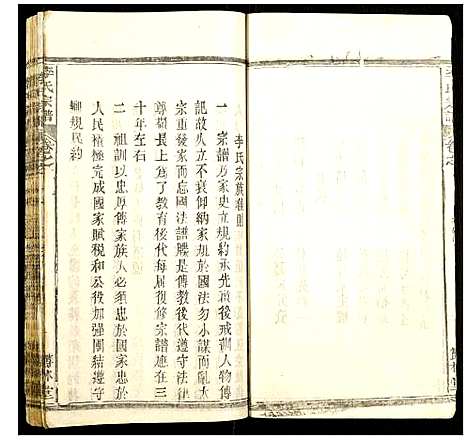 李氏宗譜
李氏宗族准則
一 宗譜乃家史立規約承先啟後戒訓人物傳
記故久立不衰仰納家規於國法勿小謀而亂大
宗重族家而忘國法譜牒是傳教後代遵守法律
尊敬長上 為了教育後代每屆復修宗譜應在
十年左右
二 祖訓以忠厚傳家族人必須忠於國家遵守
人民積極完成國家賦稅和公役加強團結遵守
鄉規民約
李氏宗譜